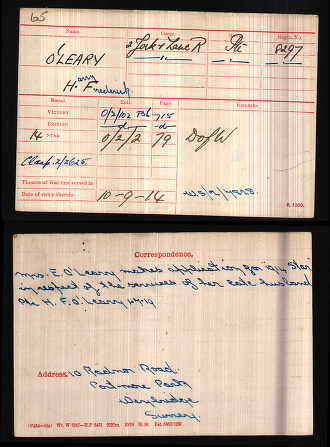 65
Name. Corps. Rank. Regtl. No.
O'LEARY 2/York & Lanc R Pte 8297
Harry Frederick
Medal. Roll. Page. Remarks.
VICTORY 0/2/102 B6 715
BRITISH -do- -do-
14 STAR 0/2/2 79 D of W
Clasp. 2/2625.
Theatre of War first served in
Date of entry therein 10-9-14
K. 1380.
Correspondence.
Mrs. E. O'Leary makes application for 1914 Star
in respect of the services of her late husband
Pte H. F. O'Leary
Address. 10 Radnor Road.
Portmore Park
Weybridge
Surrey.